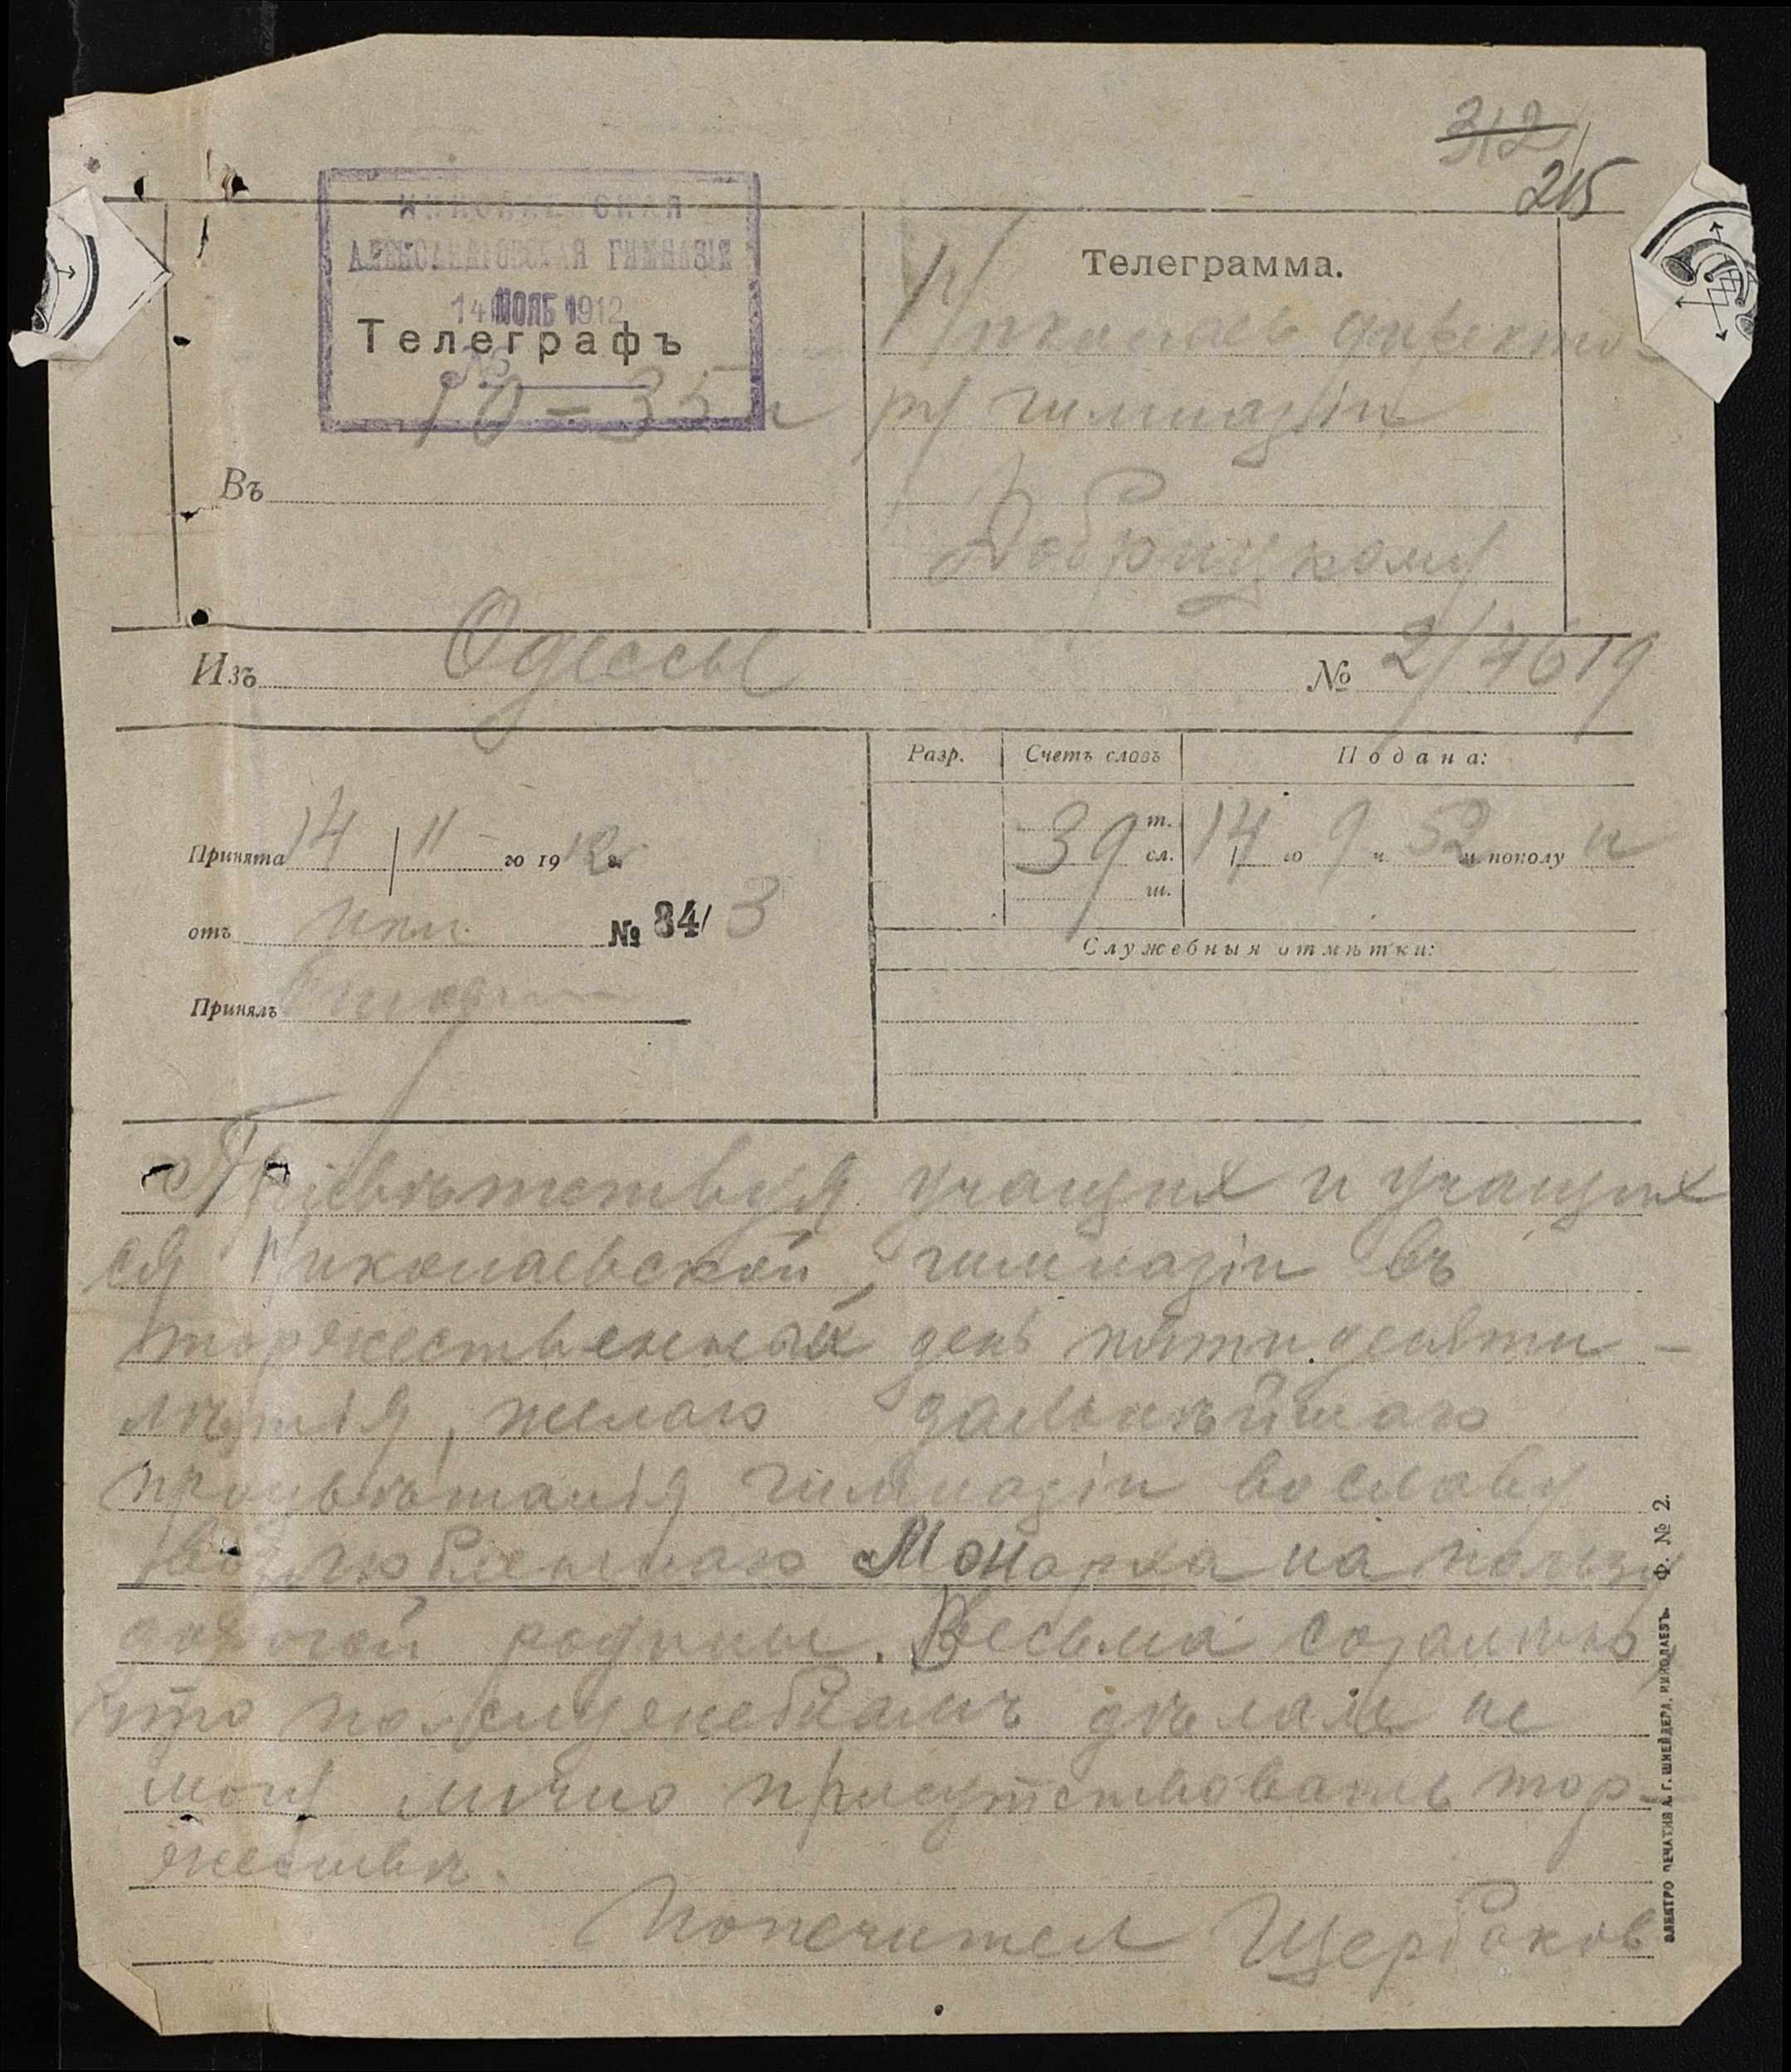 312
215
НИКОЛАЕВСКАЯ
АЛЕКСАНДРОВСКАЯ ГИМНАЗІЯ
14 НОЯБ 1912
№
Телеграфъ
10 = 35 н
Въ
Телеграмма.
Николаевъ директо-
ру гимназіи
Добрицкому
Изъ Одессы № 2/4619
Принята 14 / 11 го 1912 г.
отъ № 84/3
Принялъ
Разр. Счетъ словъ Подана:
39 т. сл. ш. 14 го 9 ч. 52 м. пополу н
Служебныя отмѣтки:
Привѣтствуя учащих и учащих
ся Николаевской гимназіи въ
торжественный день пятидесяти -
лѣтія, желаю дальнѣйшаго
процвѣтанія гимназіи во славу
возлюбленнаго Монарха на пользу
дорогой родины. Весьма сожалѣю,
что по служебнымъ дѣлам не
могу лично присутствовать тор-
жествѣ.
Попечител Щербаков
ЭЛЕКТРО ПЕЧАТНЯ А. Г. ШНЕЙДЕРА, НИКОЛАЕВЪ. Ф. № 2.